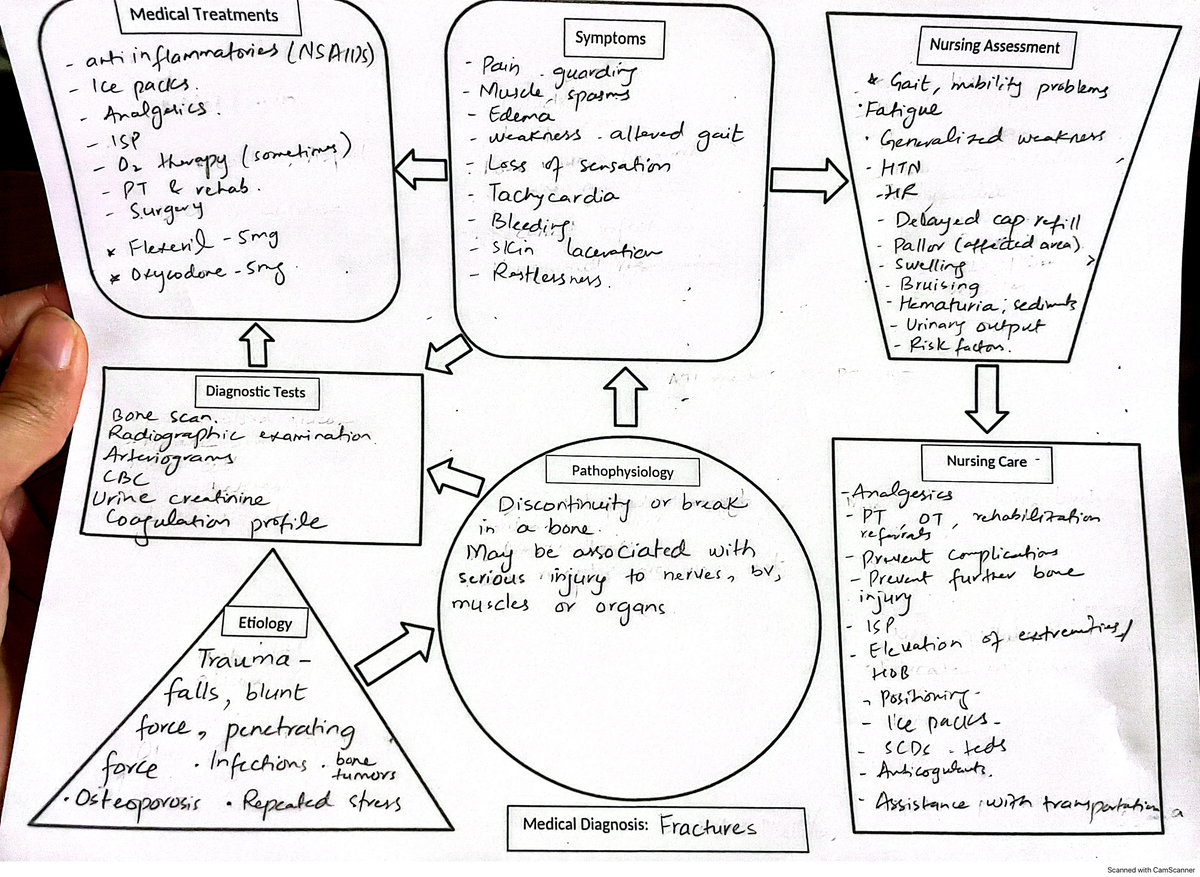 Medical Treatments
- anti inflammatories (NSAIDs)
- Ice packs.
- Analgesics.
- ISP
- O2 therapy (sometimes)
- PT & rehab.
- Surgery
* Flexeril - 5mg
* Oxycodone - 5mg.
Symptoms
- Pain - guarding
- Muscle spasms
- Edema
- weakness - altered gait
- Loss of sensation
- Tachycardia
- Bleeding
- Skin laceration
- Restlessness.
Nursing Assessment
* Gait, mobility problems
• Fatigue
• Generalized weakness
- HTN
- HR
- Delayed cap refill
- Pallor (affected area)
- Swelling
- Bruising
- Hematuria, sediments
- Urinary output
- Risk factors.
Diagnostic Tests
Bone scan.
Radiographic examination
Arteriograms
CBC
Urine creatinine
Coagulation profile
Pathophysiology
Discontinuity or break
in a bone.
May be associated with
serious injury to nerves, bv,
muscles or organs
Nursing Care
- Analgesics
- PT, OT, rehabilization
referrals
- Prevent complications
- Prevent further bone
injury
- ISP
- Elevation of extremities/
HOB
- Positioning -
- Ice packs -
- SCDs - teds
- Anticogulants.
- Assistance with transportation
Etiology
Trauma -
falls, blunt
force, penetrating
force • Infections • bone
tumors
• Osteoporosis • Repeated stress
Medical Diagnosis: Fractures
Scanned with CamScanner